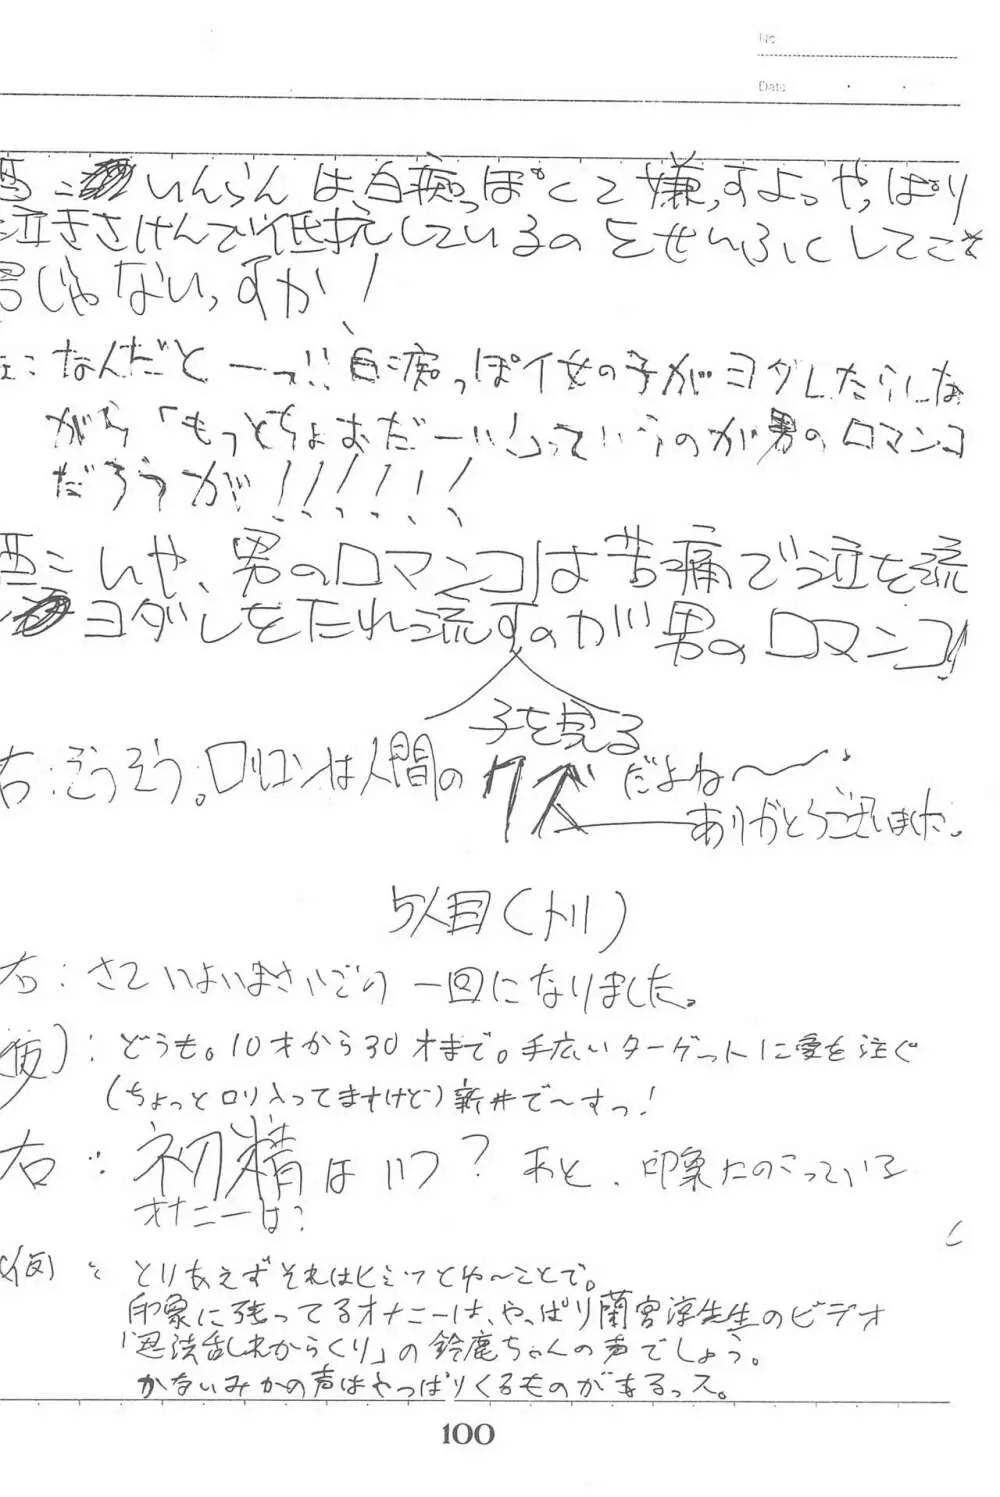 No.
Date
酉：いんらんは、白痴っぽくて嫌っすよっやっぱり
泣きさけんで低抗しているのをせいふくしてこそ
男じゃないっすか！
右：なんだとーっ!!白痴っぽイ女の子がヨダレたらしな
がら「もっとちょおだーい!」っていうのが男のロマンコ
だろうが!!!!!!
酉：いや、男のロマンコは苦痛で泣を流
ヨダレをたれ流すのが男のロマンコ!
子を見る
右：そうそう。ロリコンは人間のクズだよね〜
ありがとうございました。
5人目（トリ）
右：さていよいよまさいごの一回になりました。
（仮）：どうも。10才から30才まで。手広いターゲットに愛を注ぐ
（ちょっとロリ入ってますけど）新井で〜すっ！
右：初精はいつ？あと、印象にのこっている
オナニーは？
（仮）：とりあえずそれはヒミツとゆ〜ことで。
印象に残ってるオナニーは、やっぱり蘭宮淳先生のビデオ
「忍法乱れからくり」の鈴鹿ちゃんの声でしょう。
かないみかの声はやっぱりくるものがあるっス。
100